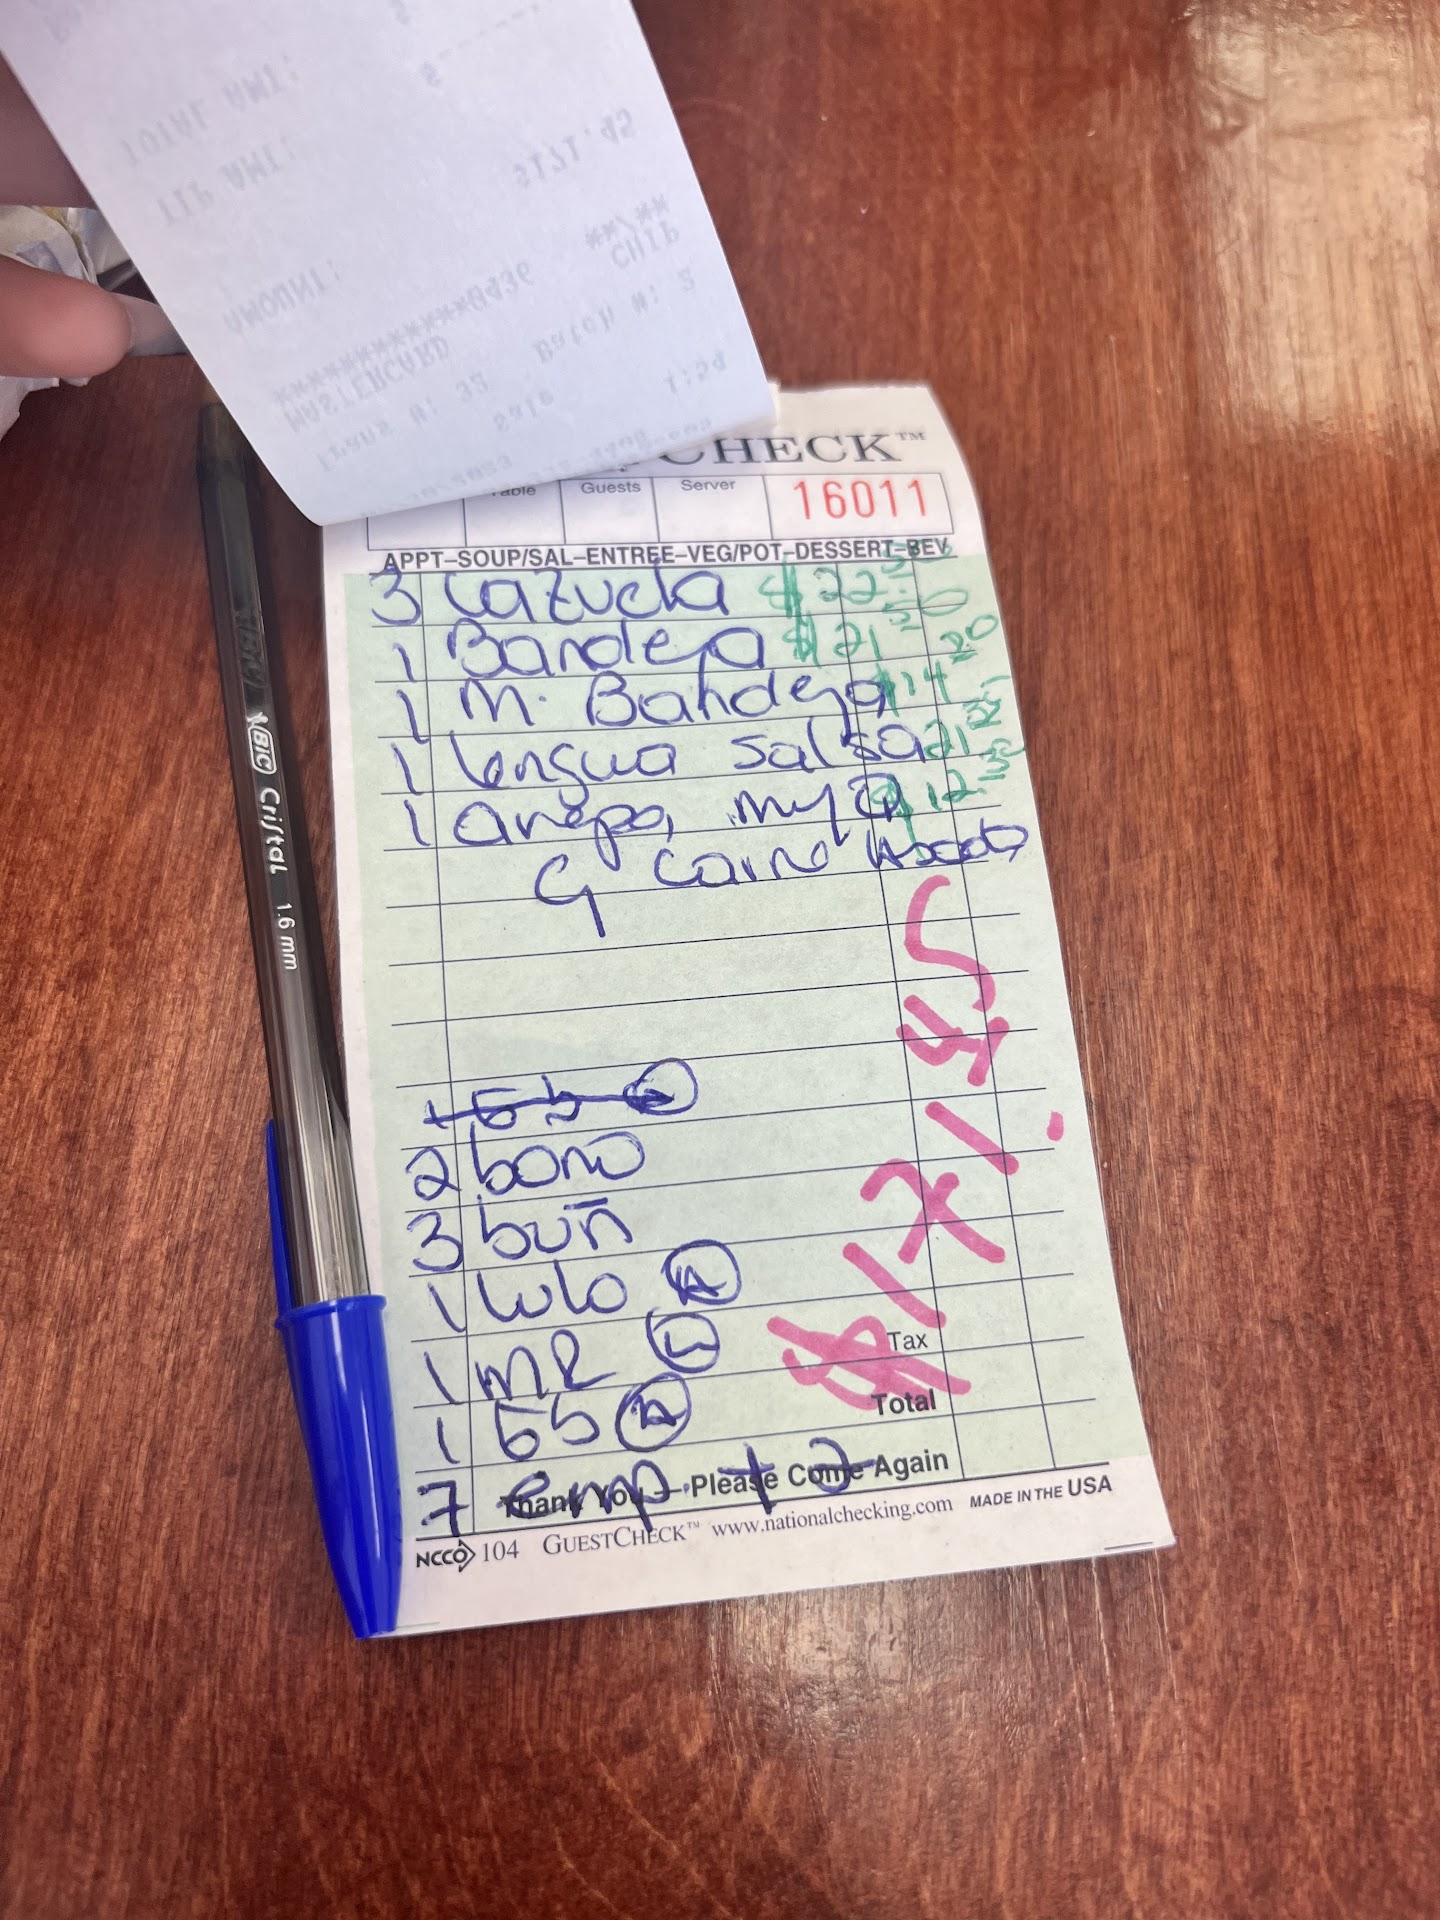 TOTAL AMT: $
TIP AMT: $
AMOUNT: $171.45
**/**
***********0436 CHIP
MASTERCARD
Trans #: 32 Batch #: 2
Sale 1:54
CHECK™
Table Guests Server 16011
APPT–SOUP/SAL–ENTREE–VEG/POT–DESSERT–BEV
3 Cazuela $22.50
1 Bandeja $21.50
1 M. Bandeja $14
1 lengua salsa 21
1 arepa, $12
carne
2 bono
3 buñ
1 lulo A
1 MR
1 A
$171.45
Tax
Total
7 emp. + 2
Thank You – Please Come Again
NCCO 104 GUESTCHECK™ www.nationalchecking.com MADE IN THE USA
BIC Cristal 1.6 mm